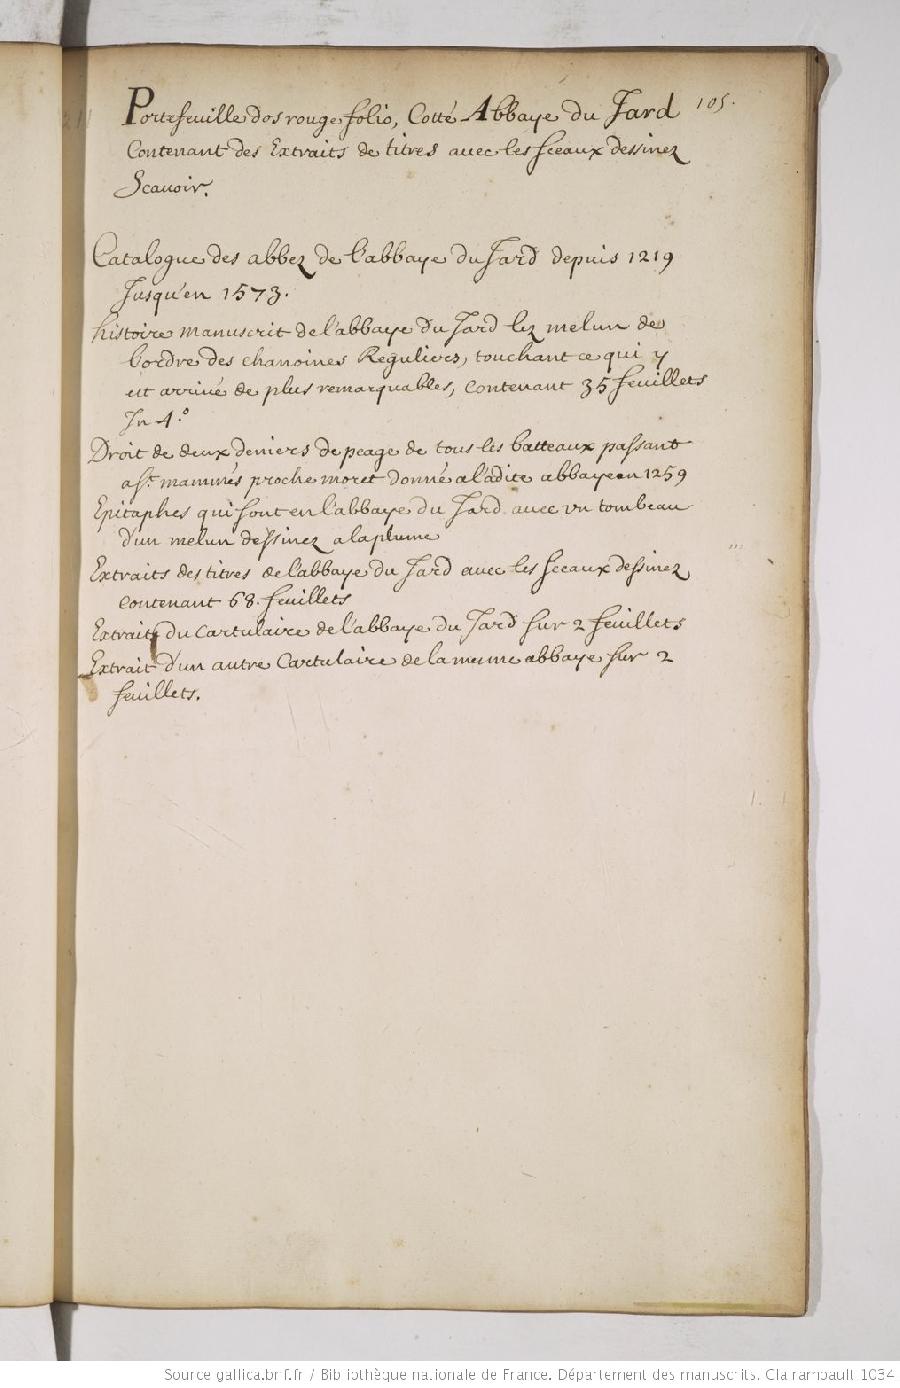 105.
Portefeuille dos rouge folio, Cotté Abbaye du Jard
Contenant des Extraits de titres avec les sceaux dessinez
Scavoir.
Catalogue des abbez de l'abbaye du Jard depuis 1219
Jusqu'en 1573.
histoire manuscrit de l'abbaye du Jard lez melun de
l'ordre des chanoines Reguliers, touchant ce qui y
est arrivé de plus remarquables, contenant 35 feuillets
In 4.º
Droit de deux deniers de peage de tous les batteaux passant
a St. mammés proche moret donné a ladite abbaye en 1259
Epitaphes qui sont en l'abbaye du Jard avec un tombeau
d'un melun dessinez a la plume
Extraits des titres de l'abbaye du Jard avec les sceaux dessinez
contenant 68. feuillets
Extrait du Cartulaire de l'abbaye du Jard sur 2 feuillets
Extrait d'un autre Cartulaire de la mesme abbaye sur 2
feuillets.
Source gallica.bnf.fr / Bibliothèque nationale de France. Département des manuscrits. Clairambault 1034